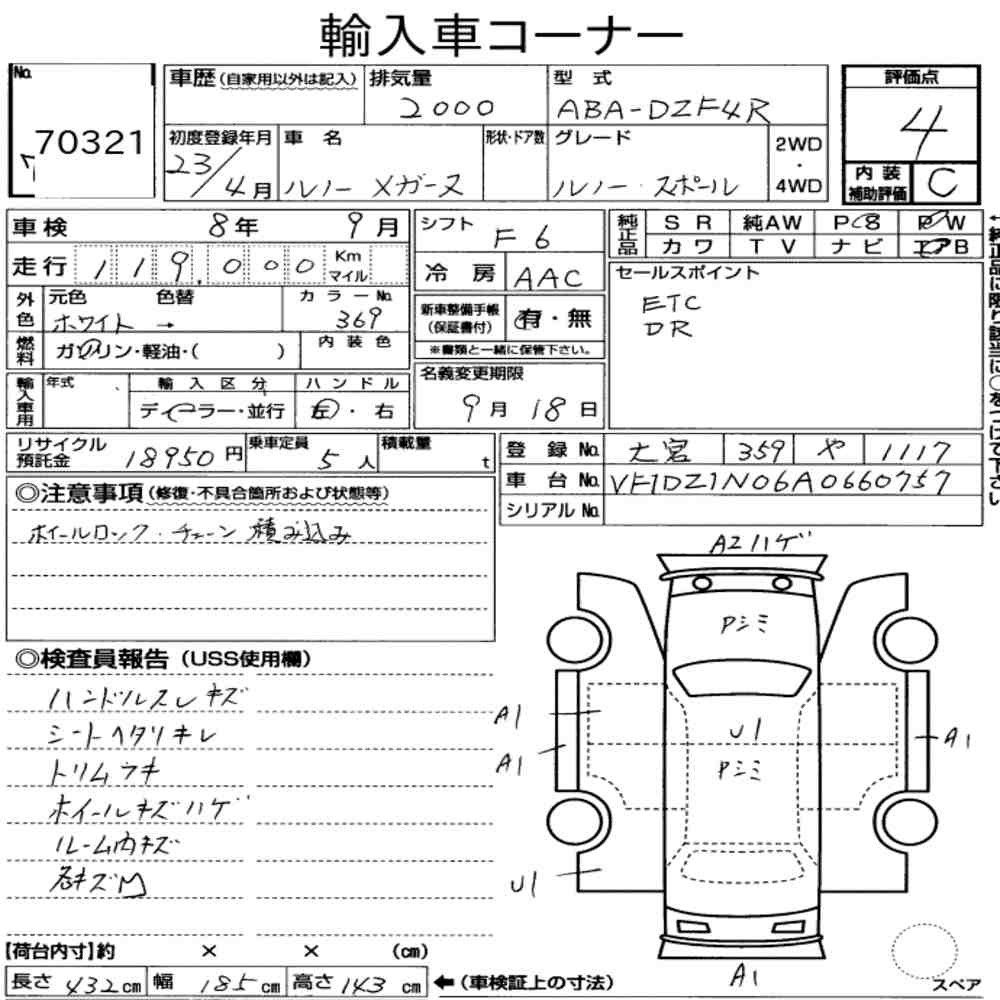 輸入車コーナー
No. 70321
車歴(自家用以外は記入) 排気量 2000 型式 ABA-DZF4R
評価点 4
初度登録年月 23/4月 車名 ルノー メガーヌ 形状・ドア数 グレード ルノー・スポール 2WD・4WD
内装補助評価 C
車検 8年 9月
走行 119,000 Km マイル
外色 元色 ホワイト → 色替 カラーNo. 369
燃料 ガソリン・軽油・( ) 内装色
輸入車用 年式 輸入区分 ディーラー・並行 ハンドル 左・右
シフト F6
冷房 AAC
新車整備手帳(保証書付) 有・無
※書類と一緒に保管下さい。
名義変更期限 9月 18日
純正品 SR 純AW PS PW
カワ TV ナビ エアB
セールスポイント
ETC
DR
←純正品に限り該当に○をつけて下さい
リサイクル預託金 18950円 乗車定員 5人 積載量 t
登録No. 大宮 359 や 1117
車台No. VF1DZ1N06A0660757
シリアルNo.
◎注意事項(修復・不具合箇所および状態等)
ホイールロック・チェーン積み込み
◎検査員報告(USS使用欄)
ハンドルスレキズ
シートヘタリキレ
トリムウキ
ホイールキズハゲ
ルーム内キズ
キズM
A2ハゲ
Pシミ
A1
U1
A1
A1
Pシミ
U1
A1
【荷台内寸】約 × × (cm)
長さ 432cm 幅 185cm 高さ 143cm ←(車検証上の寸法)
スペア